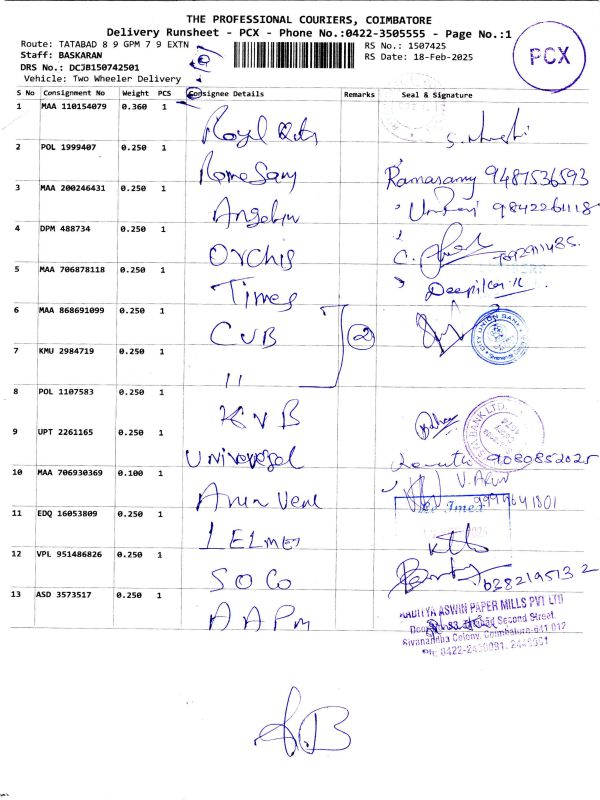 THE PROFESSIONAL COURIERS, COIMBATORE
Delivery Runsheet - PCX - Phone No.:0422-3505555 - Page No.:1
Route: TATABAD 8 9 GPM 7 9 EXTN
RS No.: 1507425
Staff: BASKARAN
RS Date: 18-Feb-2025
DRS No.: DCJB150742501
Vehicle: Two Wheeler Delivery
PCX
S No Consignment No Weight PCS Consignee Details Remarks Seal & Signature
1 MAA 110154079 0.360 1 Royal
2 POL 1999407 0.250 1 Rame Samy Ramasamy 9487536593
3 MAA 200246431 0.250 1 Angelin 9842261118
4 DPM 488734 0.250 1 Orchis
5 MAA 706878118 0.250 1 Times Deepika
6 MAA 868691099 0.250 1 CUB 2
CITY UNION BANK
7 KMU 2984719 0.250 1 11
8 POL 1107583 0.250 1 KVB
BANK LTD
9 UPT 2261165 0.250 1 Universal 9080852025
10 MAA 706930369 0.100 1 Arun V. Arun
11 EDQ 16053809 0.250 1
12 VPL 951486826 0.250 1 SOCO
13 ASD 3573517 0.250 1 AAPM
AADITYA ASWIN PAPER MILLS PVT LTD
Second Street,
Sivanandha Colony, Coimbatore-641 012
Ph: 0422-